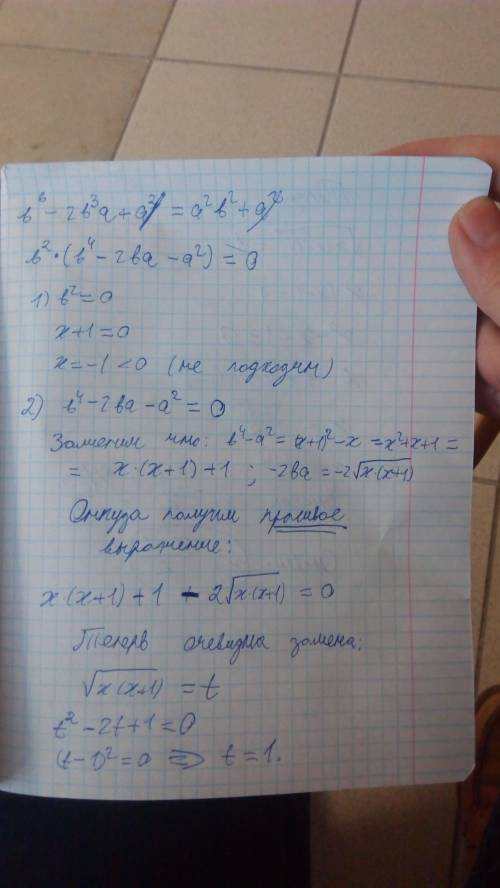 b⁶ - 2b³a + a² = a²b² + a²
b²·(b⁴ - 2ba - a²) = 0
1) b² = 0
x+1 = 0
x = -1 < 0 (не подходит)
2) b⁴ - 2ba - a² = 0
Заметим что: b⁴ - a² = (x+1)² - x = x² + x + 1 =
= x·(x+1) + 1 ; -2ba = -2√x·(x+1)
Откуда получим красивое
выражение:
x·(x+1) + 1 - 2√x·(x+1) = 0
Теперь очевидна замена:
√x(x+1) = t
t² - 2t + 1 = 0
(t-1)² = 0 => t = 1.